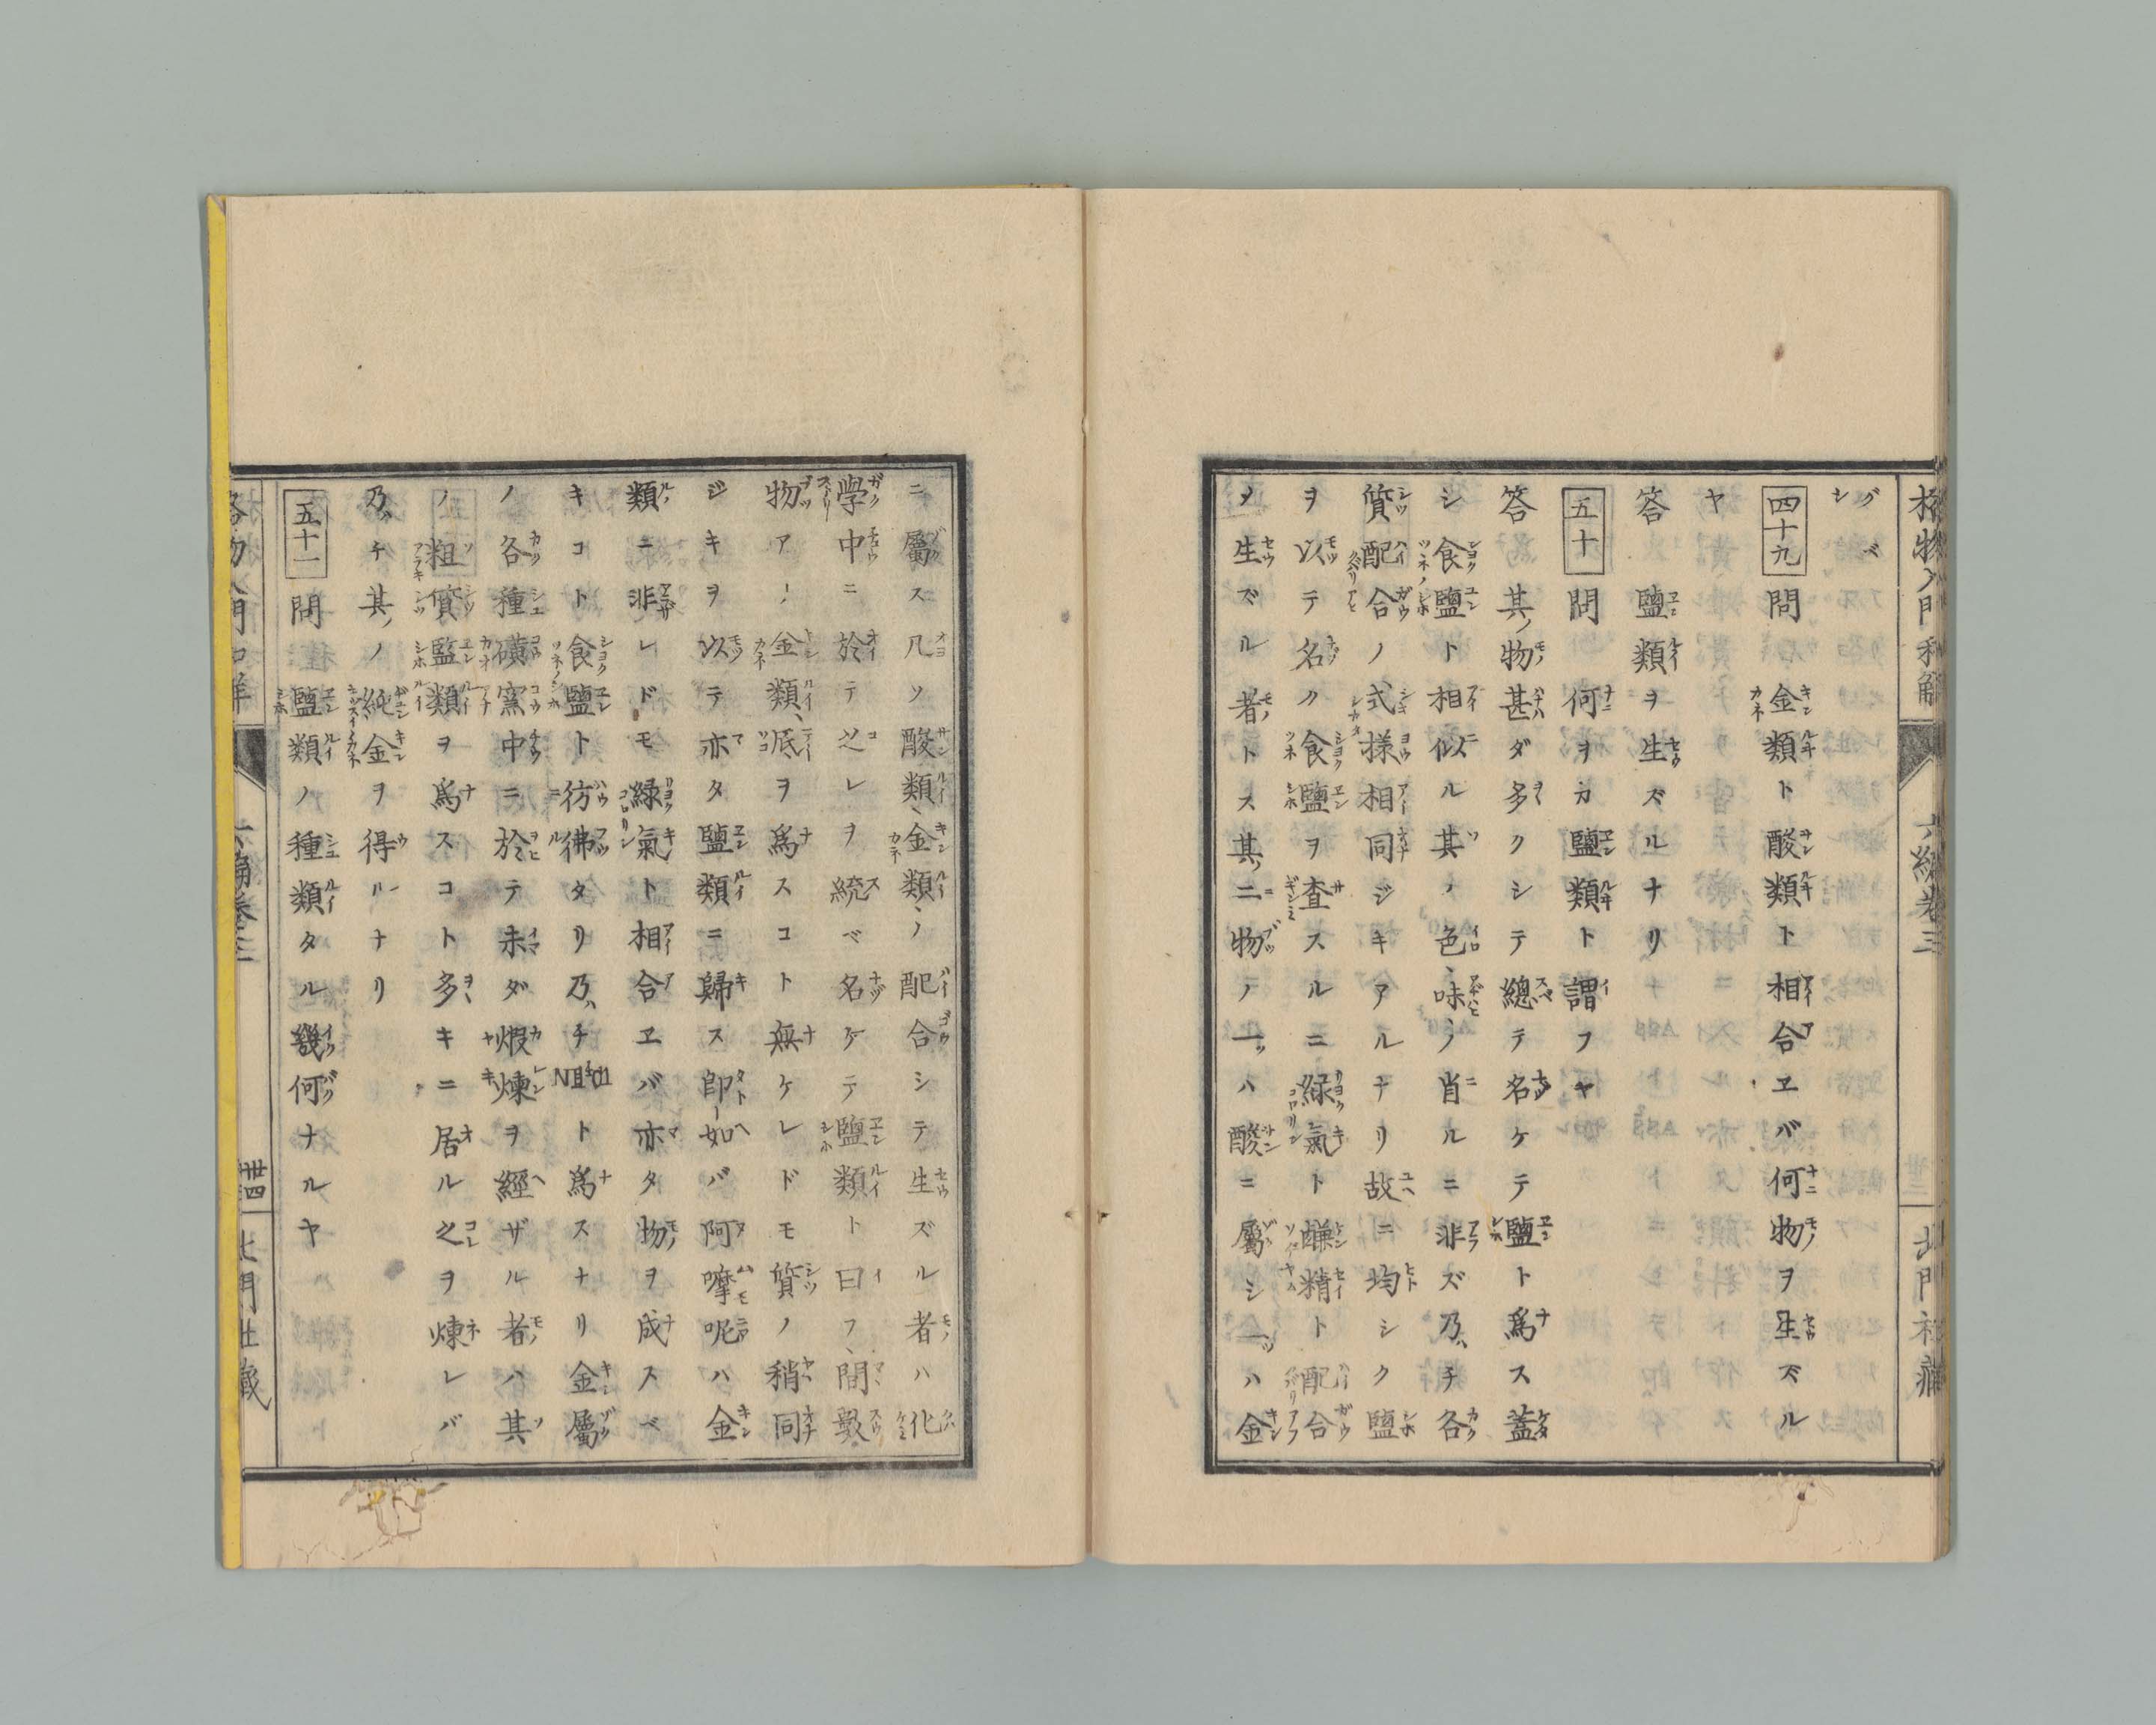 格物入門和解
六編卷三
北門社藏
グベシ
四十九 問 金類ト酸類ト相合ヱバ何物ヲ生ズル
ヤ
答 鹽類ヲ生ズルナリ
五十 問 何ヲカ鹽類ト謂フヤ
答 其ノ物甚ダ多クシテ總テ名ケテ鹽ト為ス蓋
シ食鹽ト相似ル其ノ色、味ノ肖ルニ非ズ乃チ各
質配合ノ式様相同ジキアルナリ故ニ均シク鹽
ヲ以テ名ク食鹽ヲ査スルニ緑氣ト鹻精ト配合
シ生ズル者トス其ノ二物ノ一ツハ酸ニ屬シ一ツハ金
ニ屬ス凡ソ酸類、金類、ノ配合シテ生ズル者ハ化
學中ニ於テ之レヲ統ベ名ケテ鹽類ト曰フ、間數
物アリ金類、底ヲ為スコト無ケレドモ質ノ稍同
ジキヲ以テ亦タ鹽類ニ歸ス即如バ阿嚤呢ハ金
類ニ非レドモ緑氣ト相合ヱバ亦タ物ヲ成スベ
キコト食鹽ト彷彿タリ乃チ ト為スナリ金屬
ノ各種礦窯中ニ於テ未ダ煆煉ヲ經ザル者ハ其
ノ粗質鹽類ヲ為スコト多キニ居ル之ヲ煉レバ
乃チ其ノ純金ヲ得ルナリ
五十一 問 鹽類ノ種類タル幾何ナルヤ
格物入門和解
六編卷三
丗四
北門社藏